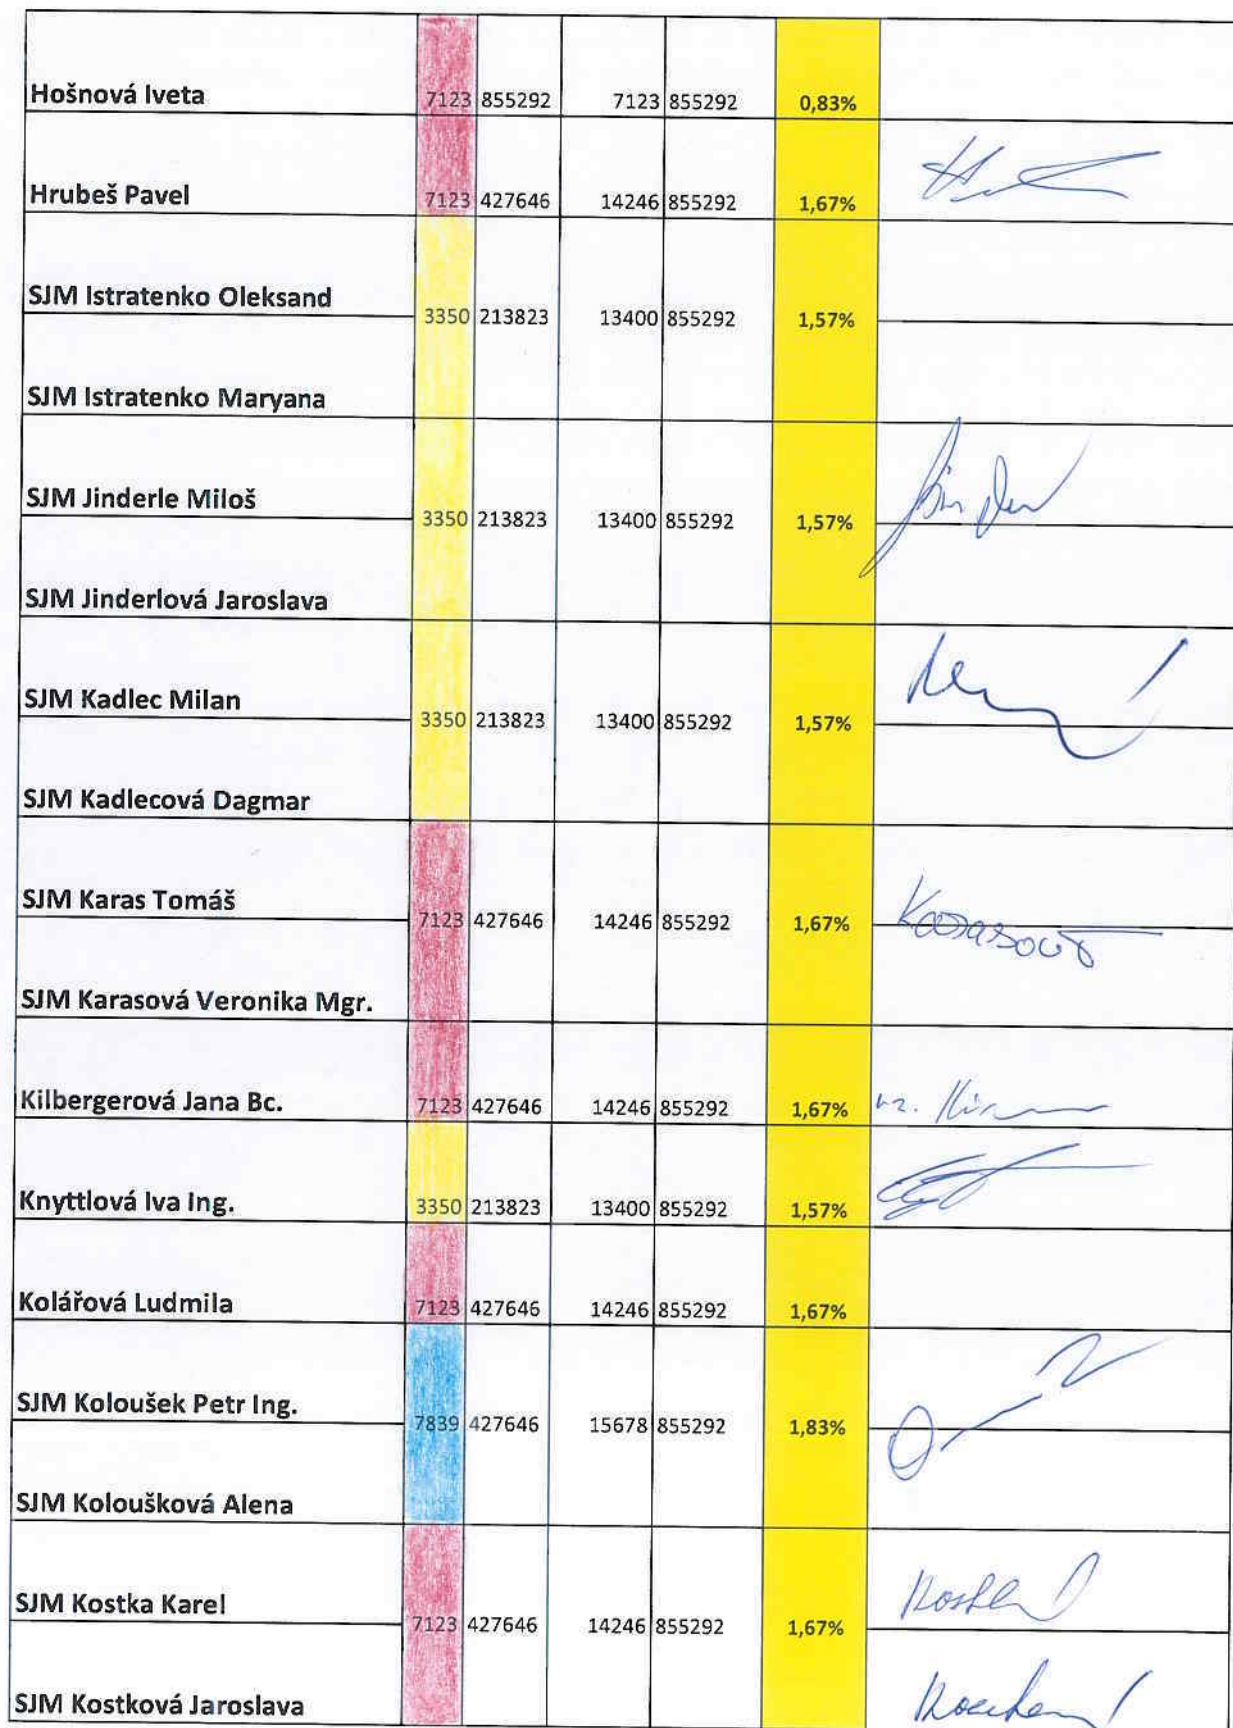 Hošnová Iveta 7123 855292 7123 855292 0,83%
Hrubeš Pavel 7123 427646 14246 855292 1,67%
SJM Istratenko Oleksand
3350 213823 13400 855292 1,57%
SJM Istratenko Maryana
SJM Jinderle Miloš
3350 213823 13400 855292 1,57%
SJM Jinderlová Jaroslava
SJM Kadlec Milan
3350 213823 13400 855292 1,57%
SJM Kadlecová Dagmar
SJM Karas Tomáš
7123 427646 14246 855292 1,67% Karasová
SJM Karasová Veronika Mgr.
Kilbergerová Jana Bc. 7123 427646 14246 855292 1,67%
Knyttlová Iva Ing. 3350 213823 13400 855292 1,57%
Kolářová Ludmila 7123 427646 14246 855292 1,67%
SJM Koloušek Petr Ing.
7839 427646 15678 855292 1,83%
SJM Koloušková Alena
SJM Kostka Karel
7123 427646 14246 855292 1,67%
SJM Kostková Jaroslava